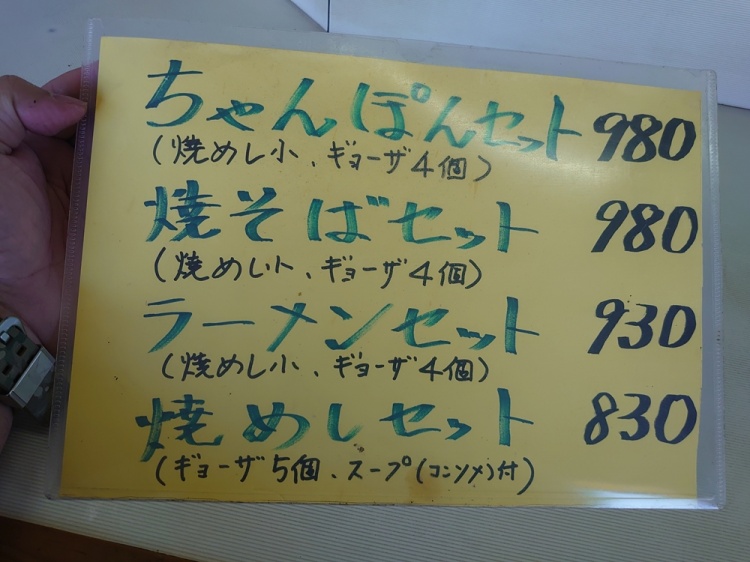 ちゃんぽんセット 980
(焼めし小、ギョーザ4個)
焼そばセット 980
(焼めし小、ギョーザ4個)
ラーメンセット 930
(焼めし小、ギョーザ4個)
焼めしセット 830
(ギョーザ5個、スープ(コンソメ)付)